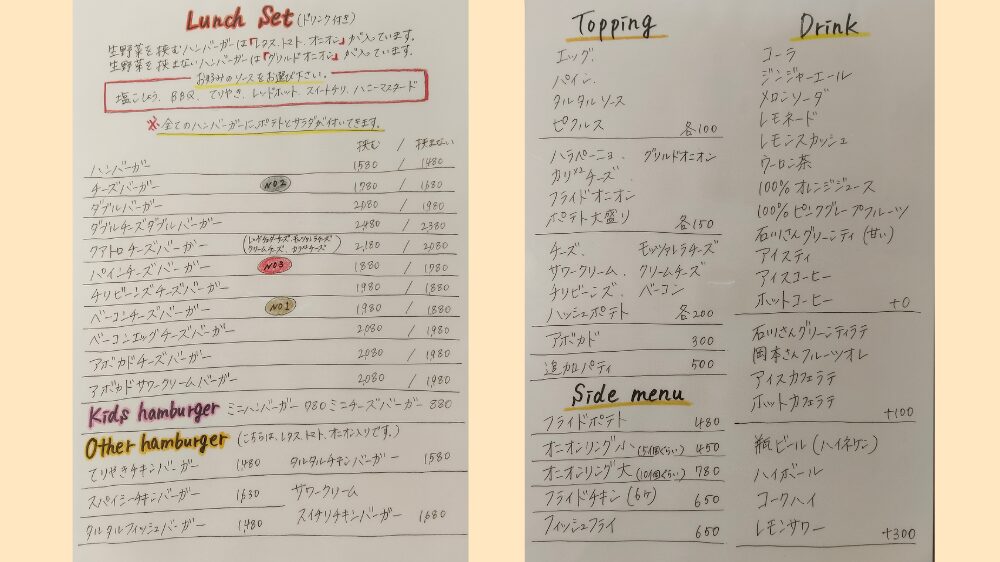 Lunch Set (ドリンク付き)
生野菜を挟むハンバーガーは『レタス、トマト、オニオン』が入っています。
生野菜を挟まないハンバーガーは『グリルドオニオン』が入っています。
お好みのソースをお選び下さい。
塩こしょう、BBQ、てりやき、レッドホット、スイートチリ、ハニーマスタード
※全てのハンバーガーに、ポテトとサラダが付いてきます。
挟む / 挟まない
ハンバーガー 1,580 / 1480
チーズバーガー NO2 1780 / 1680
ダブルバーガー 2,080 / 1980
ダブルチーズダブルバーガー 2,480 / 2380
クアトロチーズバーガー (レッドチェダーチーズ、モッツァレラチーズ クリームチーズ、カリカリチーズ) 2,180 / 2080
パインチーズバーガー NO3 1880 / 1780
チリビーンズチーズバーガー 1980 / 1,880
ベーコンチーズバーガー NO1 1,980 / 1880
ベーコンエッグチーズバーガー 2,080 / 1,980
アボカドチーズバーガー 2,080 / 1,980
アボカドサワークリームバーガー 2,080 / 1,980
Kids hamburger ミニハンバーガー 780 ミニチーズバーガー 880
Other hamburger (こちらは、レタス、トマト、オニオン入りです。)
てりやきチキンバーガー 1,480 タルタルチキンバーガー 1,580
スパイシーチキンバーガー 1,630 サワークリーム
タルタルフィッシュバーガー 1,480 スイチリチキンバーガー 1,680
Topping
エッグ、
パイン、
タルタルソース
ピクルス 各100
ハラペーニョ、グリルドオニオン
カリカリチーズ、
フライドオニオン
ポテト大盛り 各150
チーズ、モッツァレラチーズ
サワークリーム、クリームチーズ
チリビーンズ、ベーコン
ハッシュポテト 各200
アボカド 300
追加パティ 500
Side menu
フライドポテト 480
オニオンリング小(5個ぐらい) 450
オニオンリング大(10個ぐらい) 780
フライドチキン(6ヶ) 650
フィッシュフライ 650
Drink
コーラ
ジンジャーエール
メロンソーダ
レモネード
レモンスカッシュ
ウーロン茶
100%オレンジジュース
100%ピンクグレープフルーツ
石川さんグリーンティ(甘い)
アイスティ
アイスコーヒー
ホットコーヒー +0
石川さんグリーンティラテ
岡本さんフルーツオレ
アイスカフェラテ
ホットカフェラテ +100
瓶ビール(ハイネケン)
ハイボール
コークハイ
レモンサワー +300